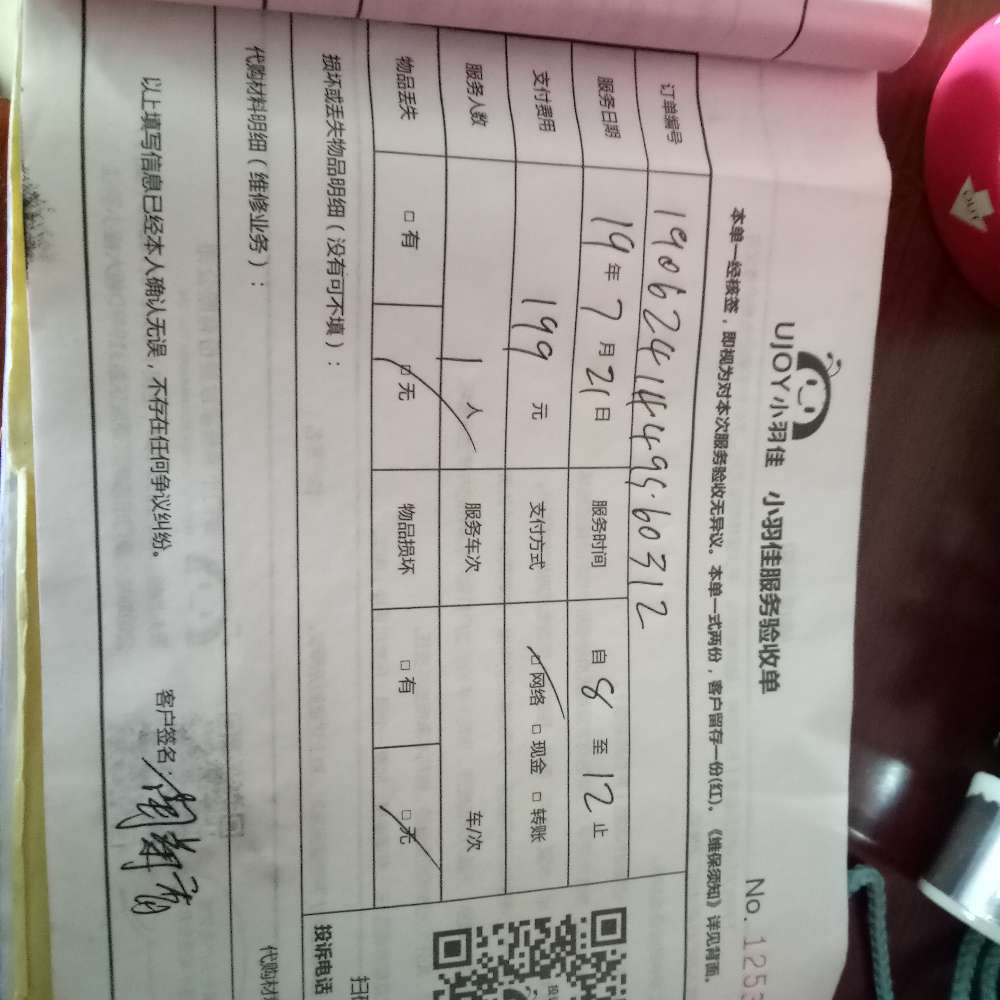 UJOY小羽佳 小羽佳服务验收单
No. 1253
本单一经核签，即视为对本次服务验收无异议。本单一式两份，客户留存一份(红)。《维保须知》详见背面。
订单编号 190624144495.60312
服务日期 19年7月21日 服务时间 自8至12止
支付费用 199元 支付方式 □网络 □现金 □转账
服务人数 1人 服务车次 车/次
物品丢失 □有 □无 物品损坏 □有 □无
损坏或丢失物品明细（没有可不填）：
投诉电话
代购材料明细（维修业务）：
以上填写信息已经本人确认无误，不存在任何争议纠纷。
客户签名：